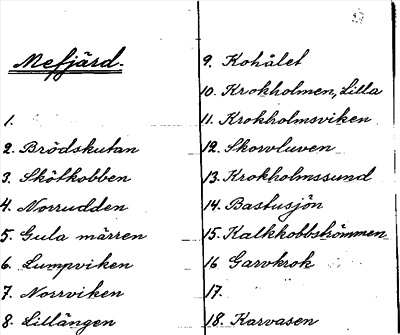 Mefjärd.
1.
2. Brödskutan
3. Skötkobben
4. Norrudden
5. Gula märren
6. Lumpviken
7. Norrviken
8. Lillängen
9. Kohålet
10. Krokholmen, Lilla
11. Krokholmsviken
12. Skorvluven
13. Krokholmssund
14. Bastusjön
15. Kalkkobbströmmen
16 Garvkrok
17.
18. Karvasen